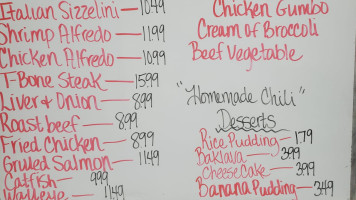 Italian Sizzelini — 10.49
Shrimp Alfredo — 11.99
Chicken Alfredo — 10.99
T-Bone Steak — 15.99
Liver & Onion — 8.99
Roast beef — 8.99
Fried Chicken — 8.99
Grilled Salmon — 11.49
Catfish — 9.99
Walleye — 11.49
Chicken Gumbo
Cream of Broccoli
Beef Vegetable
"Homemade Chili"
Desserts
Rice Pudding — 1.79
Baklava — 3.99
Cheese Cake — 3.99
Banana Pudding — 3.49